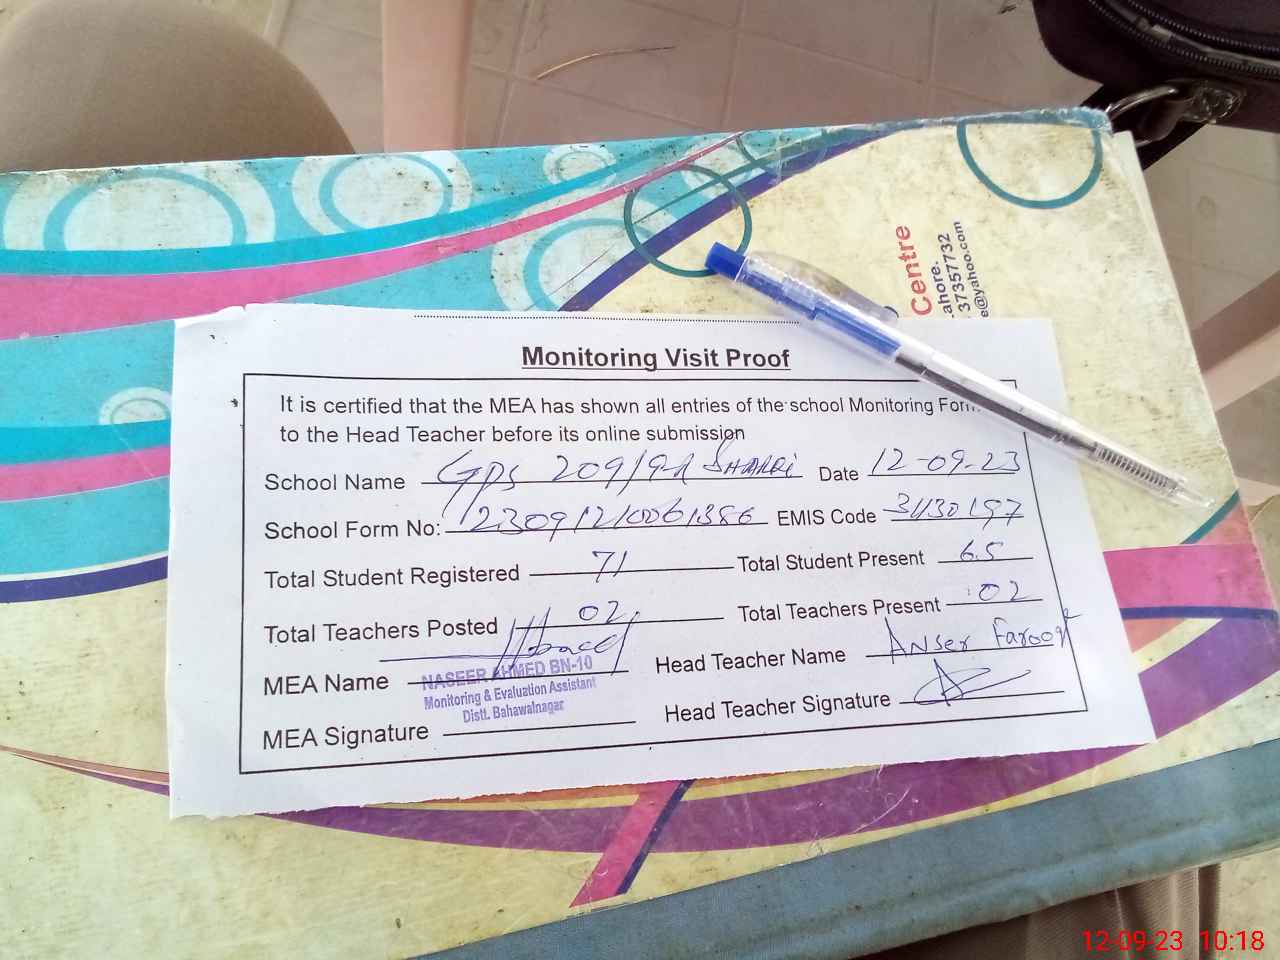 Centre
ahore.
37357732
e@yahoo.com
Monitoring Visit Proof
It is certified that the MEA has shown all entries of the school Monitoring Form
to the Head Teacher before its online submission
School Name GPS 209/9-R Date 12-09-23
School Form No: EMIS Code 31130197
Total Student Registered 71 Total Student Present 65
Total Teachers Posted 02 Total Teachers Present 02
MEA Name NASEER AHMED BN-10 Head Teacher Name Anser Farooq
Monitoring & Evaluation Assistant
Distt. Bahawalnagar
MEA Signature Head Teacher Signature
12-09-23 10:18